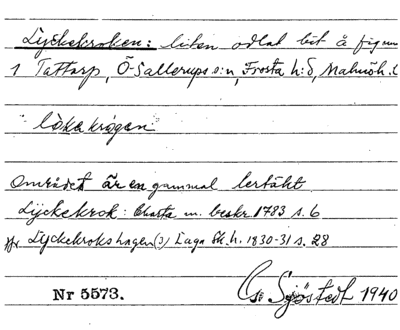 Lyckekroken: liten odlat bit å figur
1 Tattarp, Ö. Sallerups s:n, Frosta h:d, Malmöh. l
lökakrogen
Området är en gammal lertäkt
Lyckekrok: Charta m. beskr. 1783 s. 6
jfr Lyckekrokshagen (3) Laga Sk. h. 1830-31 s. 28
Nr 5573.
G. Sjöstedt 1940